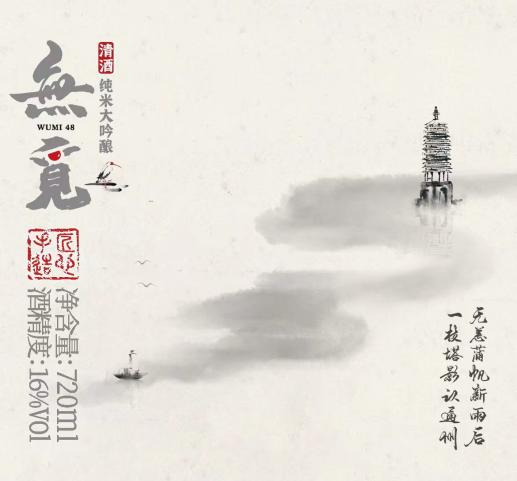 無覓
WUMI 48
清酒
纯米大吟酿
匠心
手造
净含量: 720ml
酒精度: 16%Vol
无恙蒲帆新雨后
一枝塔影认通州